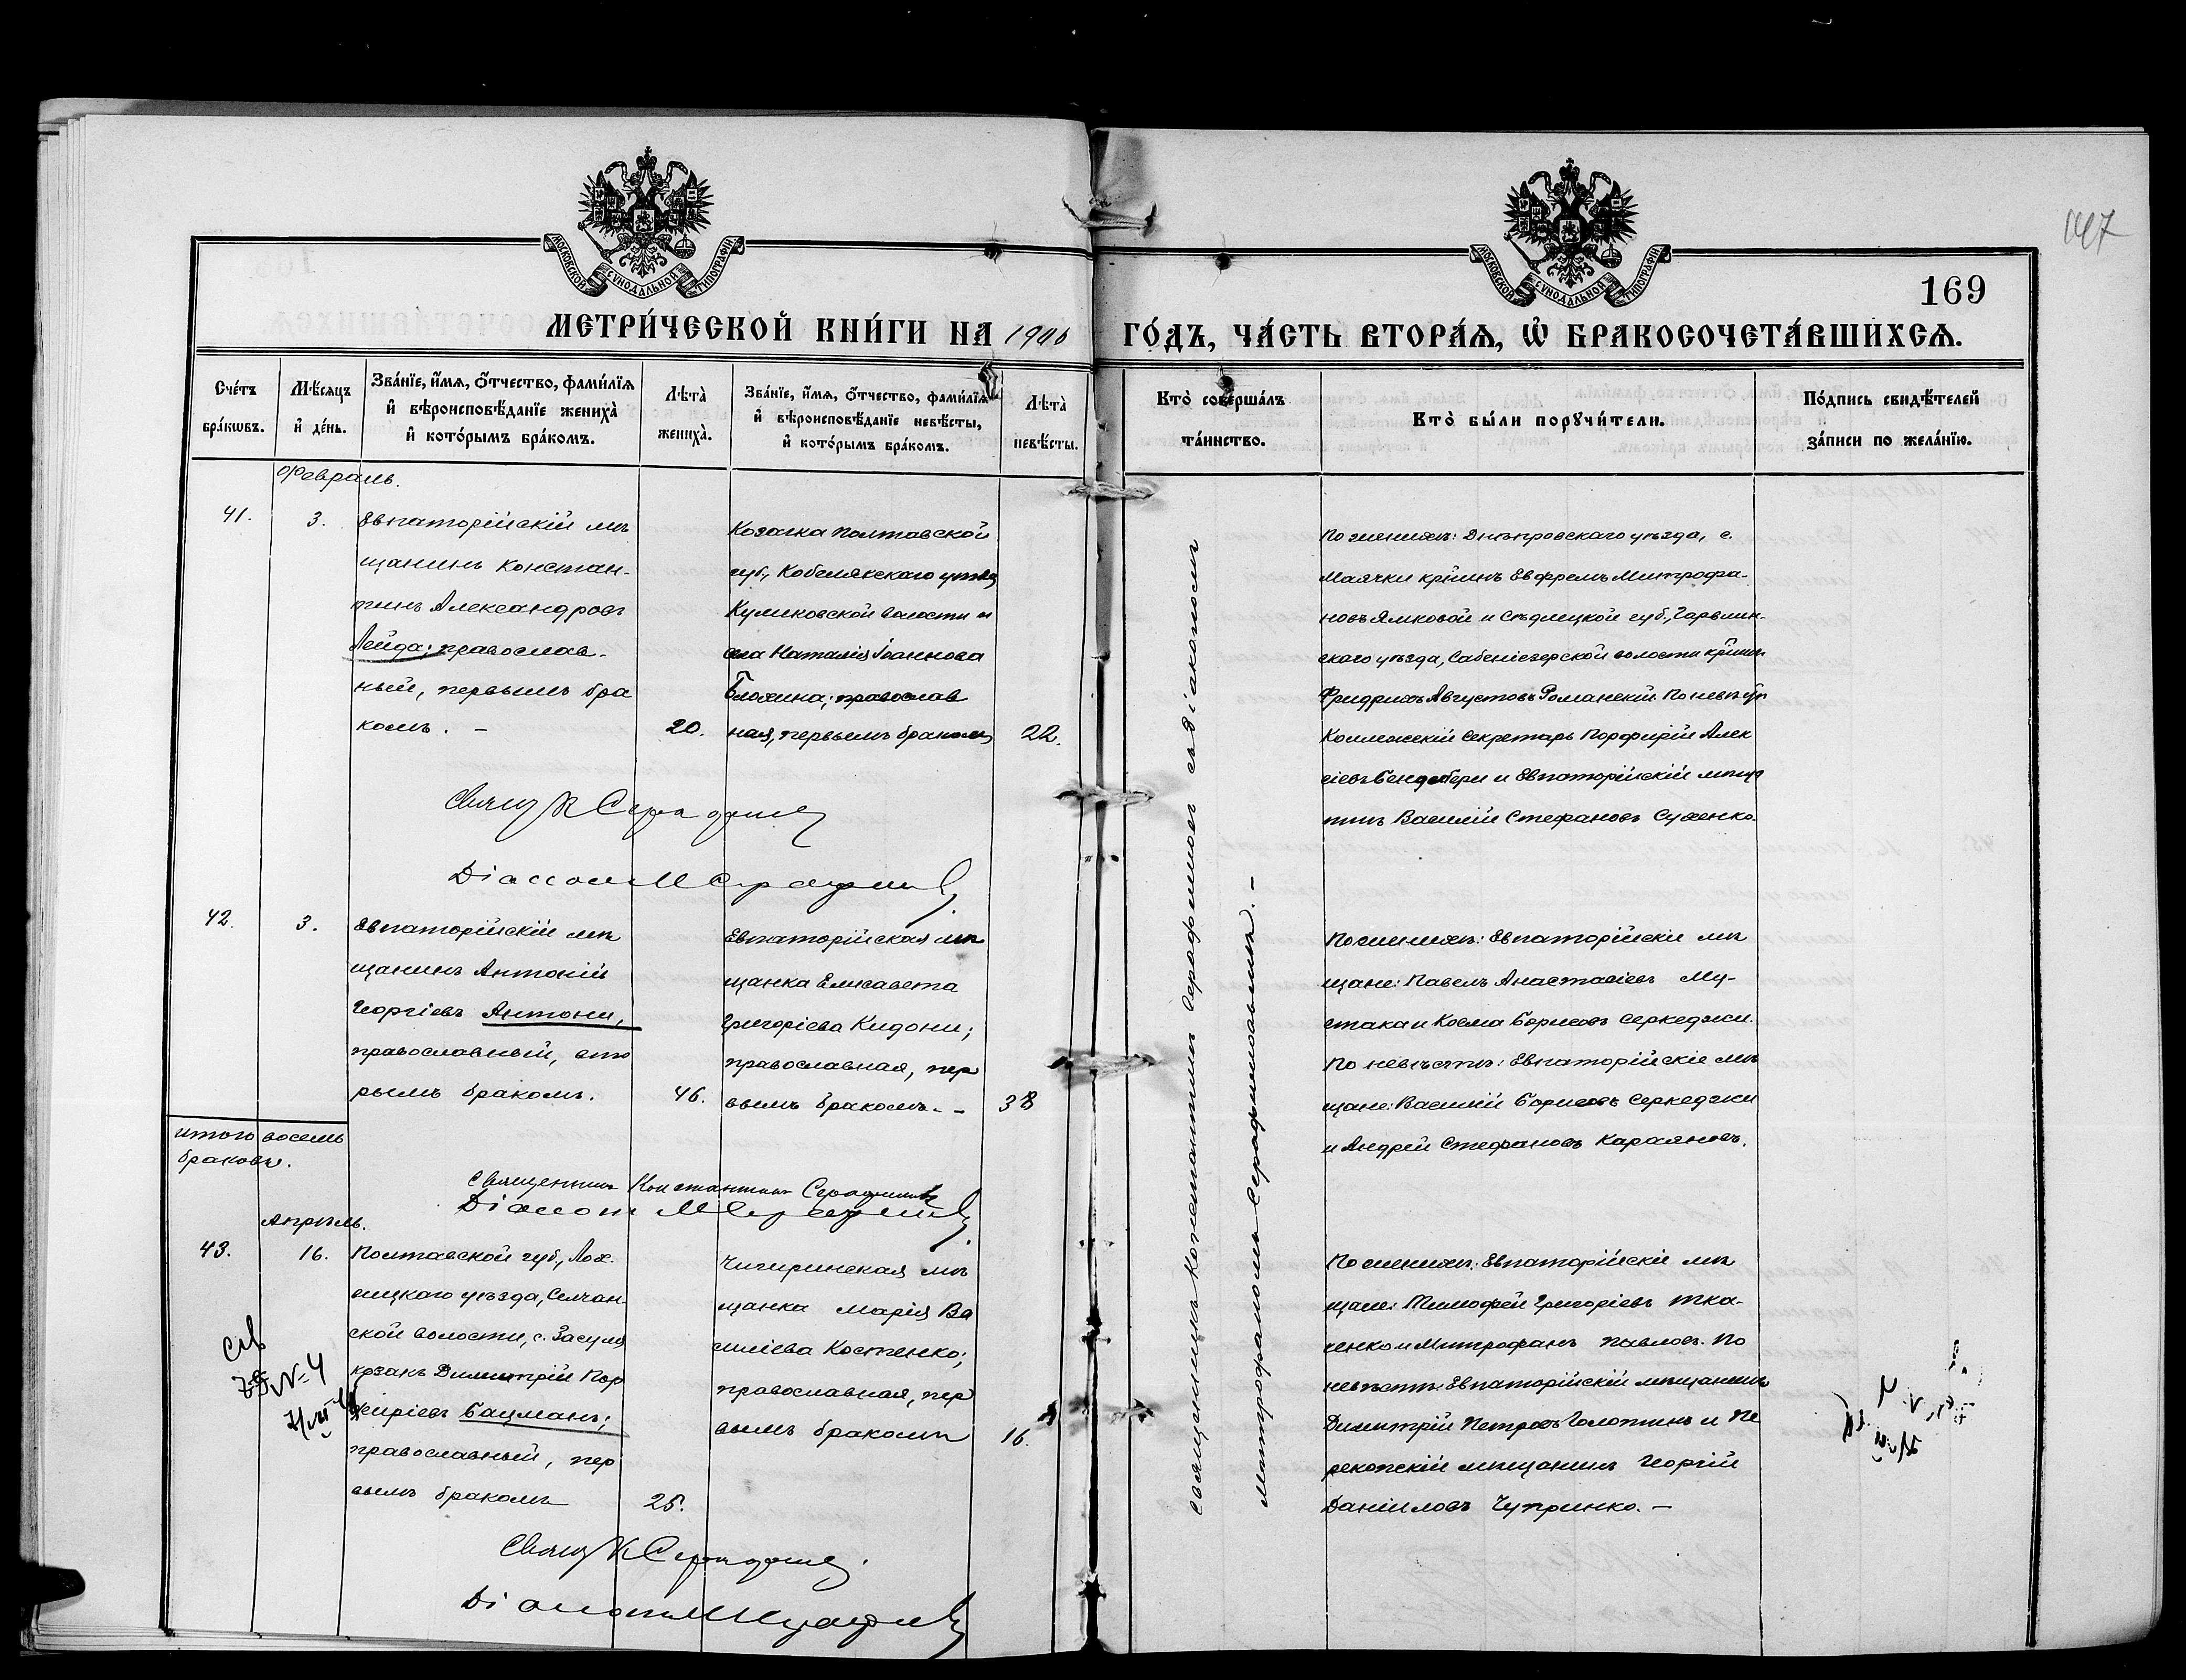 147
169
МОСКОВСКОЙ СѴНОДАЛЬНОЙ ТИПОГРАФІИ
МОСКОВСКОЙ СѴНОДАЛЬНОЙ ТИПОГРАФІИ
МЕТРИ́ЧЕСКОЙ КНИ́ГИ НА 1906 ГО́ДЪ, ЧА́СТЬ ВТОРА́Ѧ, Ѽ БРАКОСОЧЕТА́ВШИХСѦ.
Сче́тъ
бра́кѡвъ.
Мѣ́сяцъ
и҆ де́нь.
Зва́нїе, и҆́мѧ, ѻ҆́тчество, фами́лїѧ
и҆ вѣроисповѣ́данїе жениха̀
и҆ кото́рымъ бра́комъ.
Лѣта̀
жениха̀.
Зва́нїе, и҆́мѧ, ѻ҆́тчество, фами́лїѧ
и҆ вѣроисповѣ́данїе невѣ́сты,
и҆ кото́рымъ бра́комъ.
Лѣта̀
невѣ́сты.
Кто̀ соверша́лъ
та́инство.
Кто̀ бы́ли порꙋчи́тели.
По́дпись свидѣ́телей
за́писи по жела́нїю.
Февраль.
41.
3.
Евпаторійскій мѣ
щанинъ Констан-
тинъ Александровъ
Лейда; православ-
ный, первымъ бра
комъ. -
20.
Козачка Полтавской
губ., Кобелякскаго уѣзда
Куликовской волости и
села Наталія Іоаннова
Блохина; православ
ная, первымъ бракомъ
22.
По женихѣ: Днѣпровскаго уѣзда, с.
Маячки кр-инъ Евфремъ Митрофа-
новъ Ямковой и Сѣдлецкой губ., Гарвлин-
скаго уѣзда, волости кр-инъ
Фридрихъ Августовъ Романскій. По невѣстѣ
Коллежскій Секретарь Порфирій Алек
сіевъ Бендебери и Евпаторійскій мѣща
нинъ Василій Стефановъ Сухенко.
Священникъ Константинъ Серафимовъ съ діакономъ
Митрофаномъ Серафимовымъ. -
Свящ К Серафимовъ
Діаконъ М Серафимовъ
42.
3.
Евпаторійскій мѣ
щанинъ Антоній
Георгіевъ Антони,
православный, вто
рымъ бракомъ.
46.
Евпаторійская мѣ
щанка Елисавета
Григоріева Кидони;
православная, пер
вымъ бракомъ. -
38
По женихѣ: Евпаторійскіе мѣ
щане: Павелъ Анастасіевъ Му-
стака и Косма Борисовъ Серкеджи.
По невѣстѣ: Евпаторійскіе мѣ
щане: Василій Борисовъ Серкеджи
и Андрей Стефановъ Караяновъ.
Итого восемь
браковъ.
Священникъ Константинъ Серафимовъ
Діаконъ М Серафимовъ
Апрѣль.
43.
16.
Полтавской губ., Лох-
вицкаго уѣзда,
ской волости, с. Засулья
козакъ Димитрій Пор
фиріевъ Бацманъ;
православный, пер
вымъ бракомъ
25.
Чигиринская мѣ
щанка Марія Ва
силіева Костенко;
православная, пер
вымъ бракомъ
16.
По женихѣ: Евпаторійскіе мѣ
щане: Тимофей Григоріевъ Тка-
ченко и Митрофанъ Павловъ. По
невѣстѣ: Евпаторійскій мѣщанинъ
Димитрій Петровъ Голотинъ и Пе
рекопскій мѣщанинъ Георгій
Даніиловъ Чупринко. -
Свящ К Серафимовъ.
Діаконъ М Серафимовъ